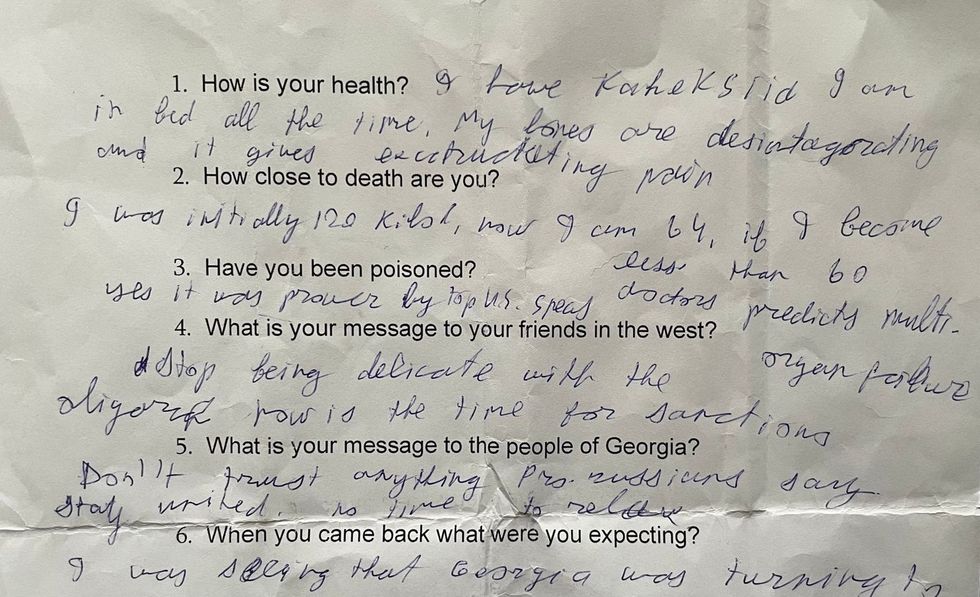 1. How is your health? I have KaheKSiid I am
in bed all the time. My bones are desintagorating
and it gives excstruckating pain
2. How close to death are you?
I was initially 120 kilos, now I am 64, if I become
less than 60
doctors predicts multi-
organ failure
3. Have you been poisoned?
yes it was proven by top U.S.
4. What is your message to your friends in the west?
Stop being delicate with the
oligarch now is the time for sanctions
5. What is your message to the people of Georgia?
Don't trust anything pro. russians say
stay united. no time to relax
6. When you came back what were you expecting?
I was seeing that Georgia was turning to